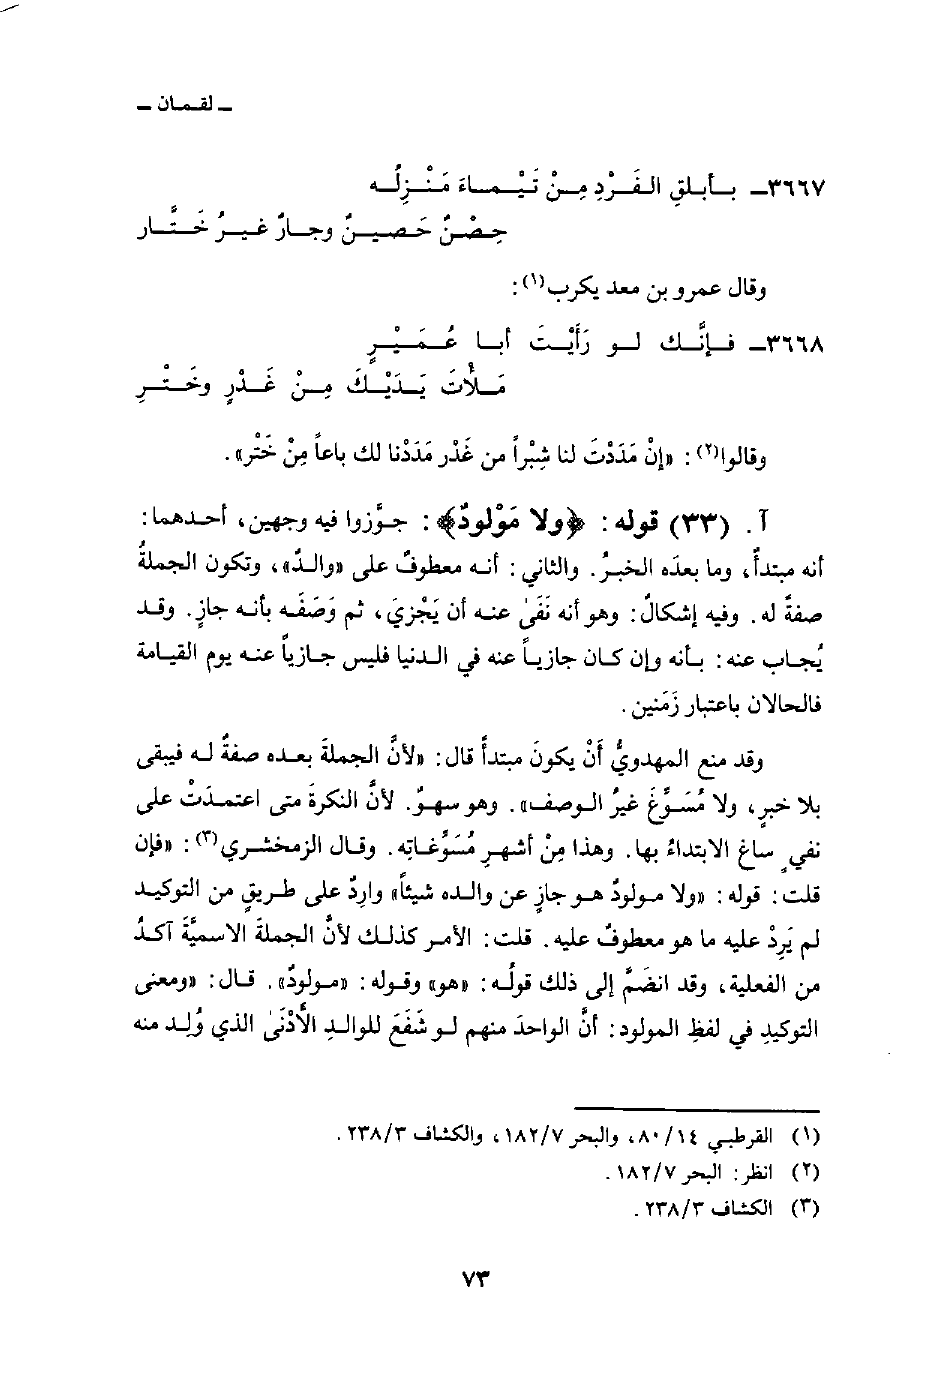 ـ لقمان ـ
٣٦٦٧ـ بأبلقِ الفَرْدِ مِنْ تَيْماءَ مَنْزِلُه
حِصْنٌ حَصينٌ وجارٌ غيرُ خَتَّارِ
وقال عمرو بن معد يكرب(١):
٣٦٦٨ـ فإنَّك لو رَأَيْتَ أبا عُمَيْرٍ
مَلأْتَ يَدَيْكَ مِنْ غَدْرٍ وخَتْرِ
وقالوا(٢): «إنْ مَدَدْتَ لنا شِبْراً من غَدْر مَدَدْنا لك باعاً مِنْ خَتْر».
آ. (٣٣) قوله: ﴿ولا مَوْلودٌ﴾: جوَّزوا فيه وجهين، أحدهما:
أنه مبتدأٌ، وما بعدَه الخبرُ. والثاني: أنه معطوفٌ على «والدٌ»، وتكون الجملةُ
صفةً له. وفيه إشكالٌ: وهو أنه نَفَىٰ عنه أن يَجْزيَ، ثم وَصَفَه بأنه جازٍ. وقد
يُجاب عنه: بأنه وإن كان جازياً عنه في الدنيا فليس جازياً عنه يوم القيامة
فالحالان باعتبار زَمَنين.
وقد منع المهدويُّ أَنْ يكونَ مبتدأً قال: «لأنَّ الجملةَ بعده صفةٌ له فيبقى
بلا خبرٍ، ولا مُسَوِّغَ غيرُ الوصف». وهو سهوٌ. لأنَّ النكرةَ متى اعتمدَتْ على
نفيٍ ساغ الابتداءُ بها. وهذا مِنْ أشهرِ مُسَوِّغاتِه. وقال الزمخشري(٣): «فإن
قلت: قوله: «ولا مولودٌ هو جازٍ عن والده شيئاً» واردٌ على طريقٍ من التوكيد
لم يَرِدْ عليه ما هو معطوفٌ عليه. قلت: الأمر كذلك لأنَّ الجملةَ الاسميَّةَ آكدُ
من الفعلية، وقد انضَمَّ إلى ذلك قولُه: «هو» وقوله: «مولودٌ». قال: «ومعنى
التوكيدِ في لفظِ المولود: أنَّ الواحدَ منهم لو شَفَعَ للوالدِ الأَدْنَىٰ الذي وُلِد منه
(١) القرطبي ٨٠/١٤، والبحر ١٨٢/٧، والكشاف ٢٣٨/٣.
(٢) انظر: البحر ١٨٢/٧.
(٣) الكشاف ٢٣٨/٣.
٧٣